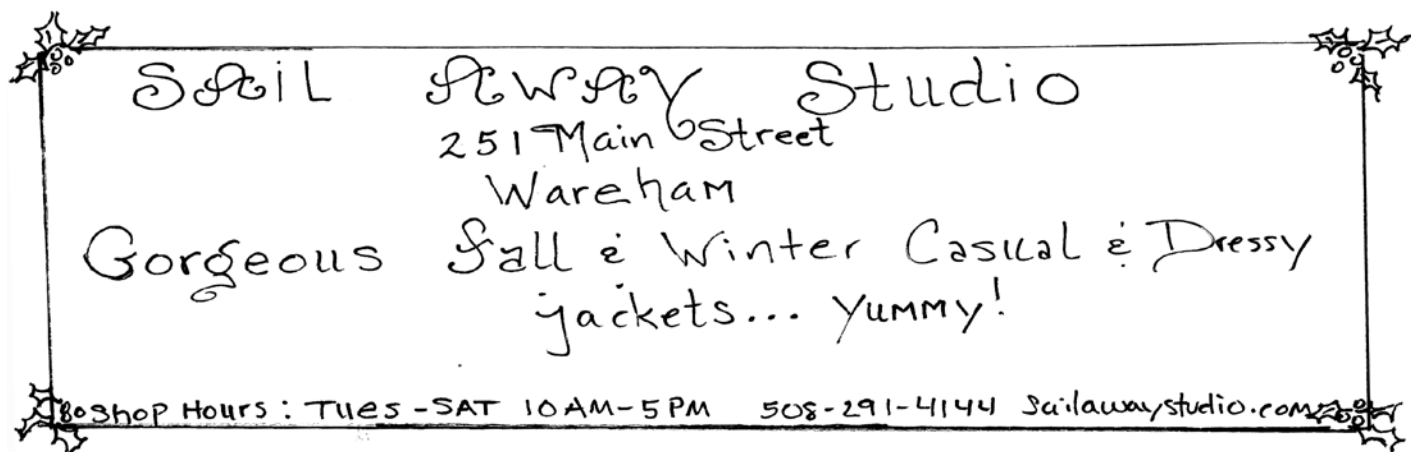 Sail Away Studio
251 Main Street
Wareham
Gorgeous Fall & Winter Casual & Dressy
jackets... Yummy!
Shop Hours: Tues-SAT 10AM-5PM 508-291-4144 Sailawaystudio.com